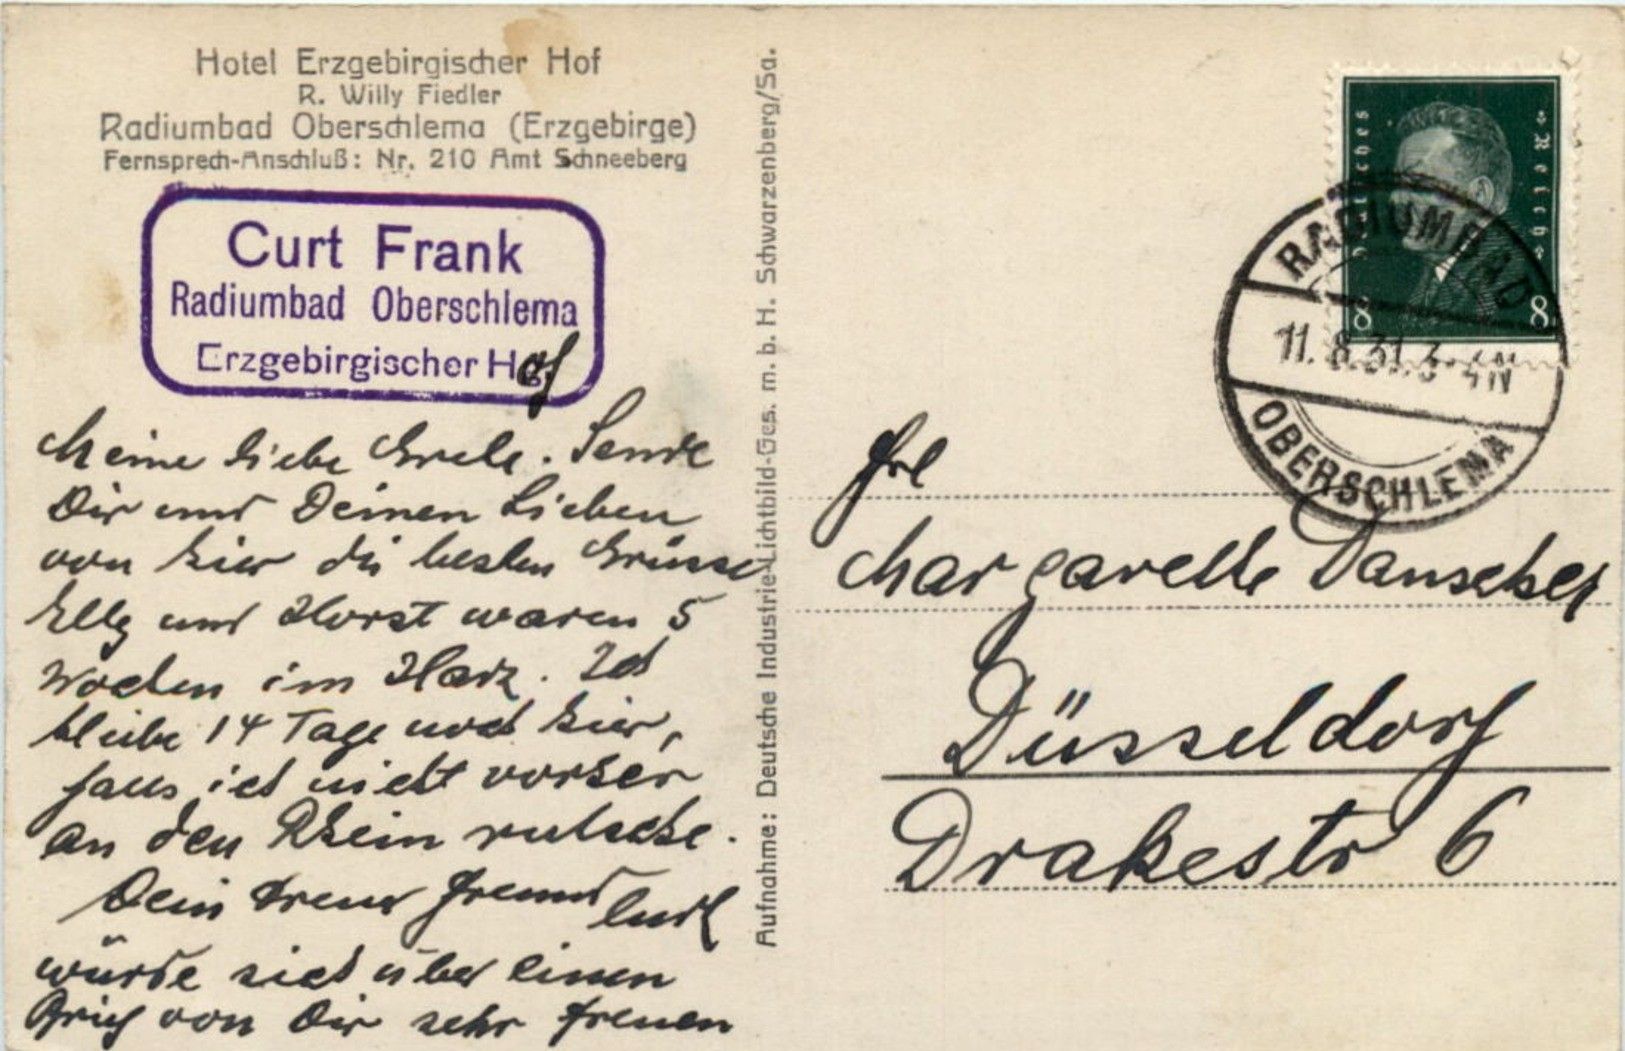 Hotel Erzgebirgischer Hof
R. Willy Fiedler
Radiumbad Oberschlema (Erzgebirge)
Fernsprech-Anschluß: Nr. 210 Amt Schneeberg
Curt Frank
Radiumbad Oberschlema
Erzgebirgischer Hof
Meine liebe Grete. Sende
Dir und Deinen Lieben
von hier die besten Grüsse
Elly und Horst waren 5
Wochen im Harz. Ich
bleibe 14 Tage noch hier,
falls ich nicht vorher
an den Rhein rutsche.
Dein treuer Freund Curt
würde sich über einen
Brief von Dir sehr freuen
Aufnahme: Deutsche Industrie-Lichtbild-Ges. m. b. H. Schwarzenberg/Sa.
Deutsches Reich
8 8
RADIUMBAD
11. 8. 31. 3-4N
OBERSCHLEMA
Frl
Margarethe
Düsseldorf
Drakestr 6